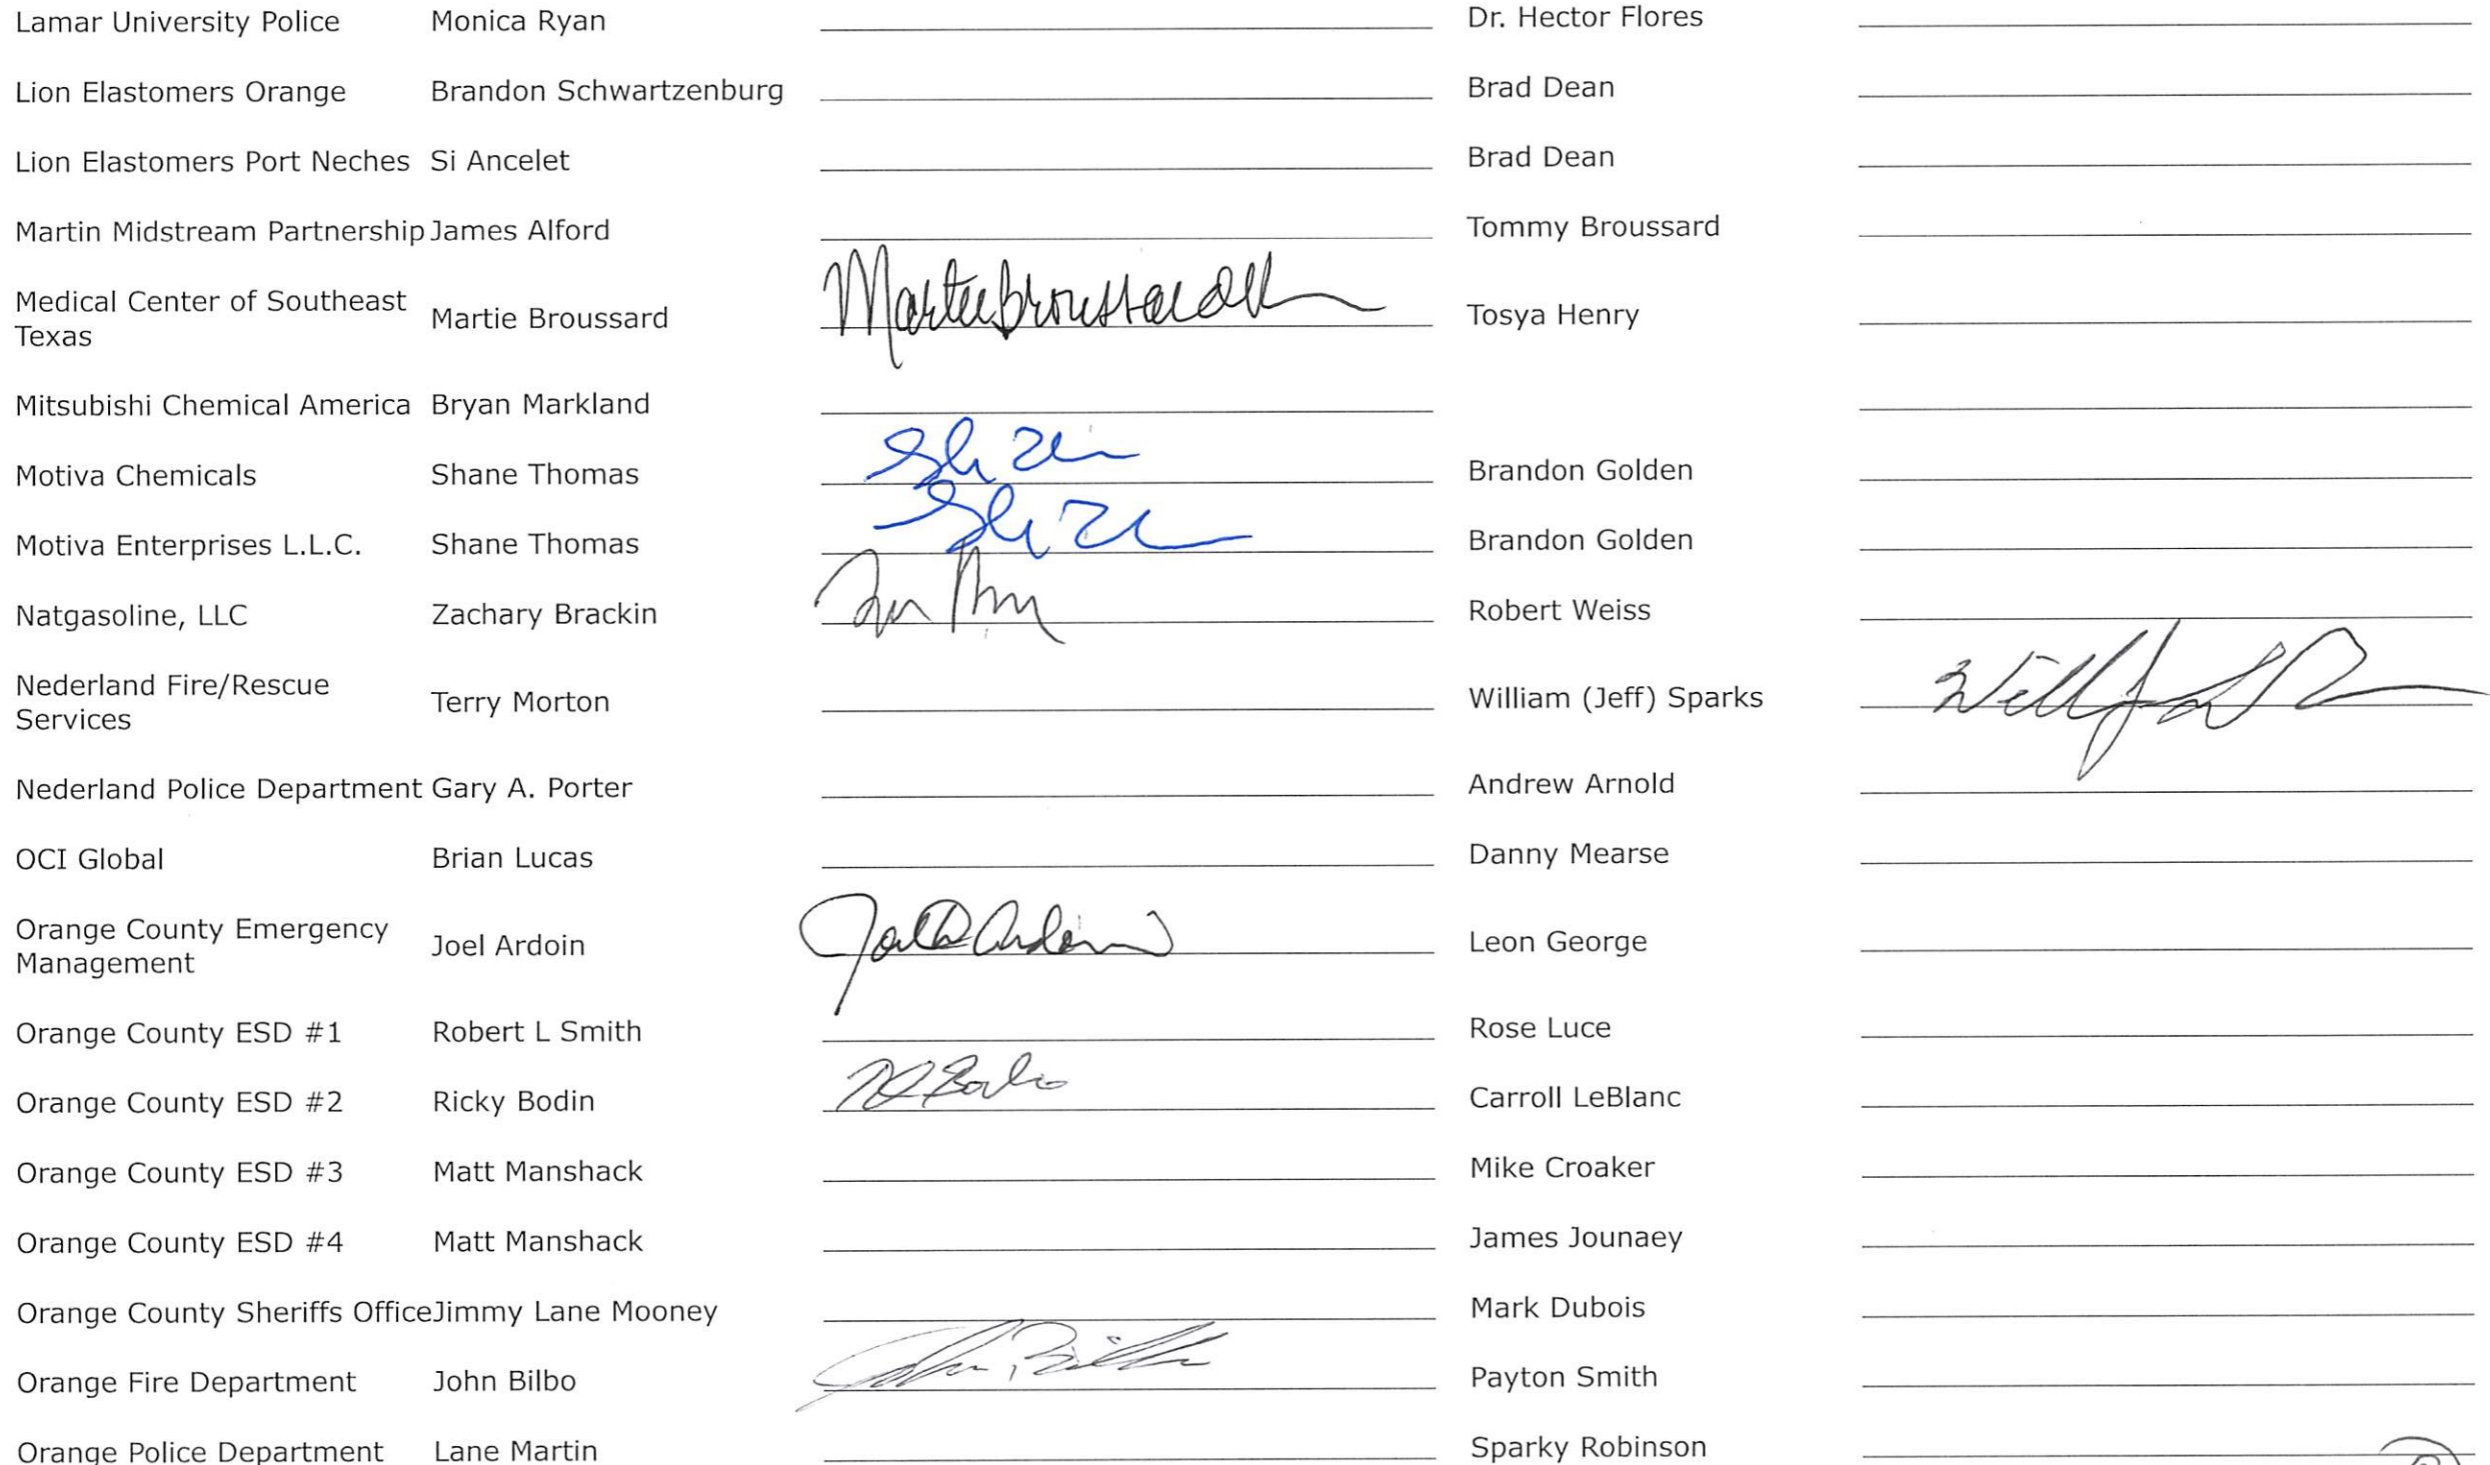 Lamar University Police Monica Ryan Dr. Hector Flores
Lion Elastomers Orange Brandon Schwartzenburg Brad Dean
Lion Elastomers Port Neches Si Ancelet Brad Dean
Martin Midstream Partnership James Alford Tommy Broussard
Medical Center of Southeast
Texas Martie Broussard Martie Broussard Tosya Henry
Mitsubishi Chemical America Bryan Markland
Motiva Chemicals Shane Thomas Brandon Golden
Motiva Enterprises L.L.C. Shane Thomas Brandon Golden
Natgasoline, LLC Zachary Brackin Robert Weiss
Nederland Fire/Rescue
Services Terry Morton William (Jeff) Sparks
Nederland Police Department Gary A. Porter Andrew Arnold
OCI Global Brian Lucas Danny Mearse
Orange County Emergency
Management Joel Ardoin Ardoin Leon George
Orange County ESD #1 Robert L Smith Rose Luce
Orange County ESD #2 Ricky Bodin Carroll LeBlanc
Orange County ESD #3 Matt Manshack Mike Croaker
Orange County ESD #4 Matt Manshack James Jounaey
Orange County Sheriffs Office Jimmy Lane Mooney Mark Dubois
Orange Fire Department John Bilbo John Bilbo Payton Smith
Orange Police Department Lane Martin Sparky Robinson